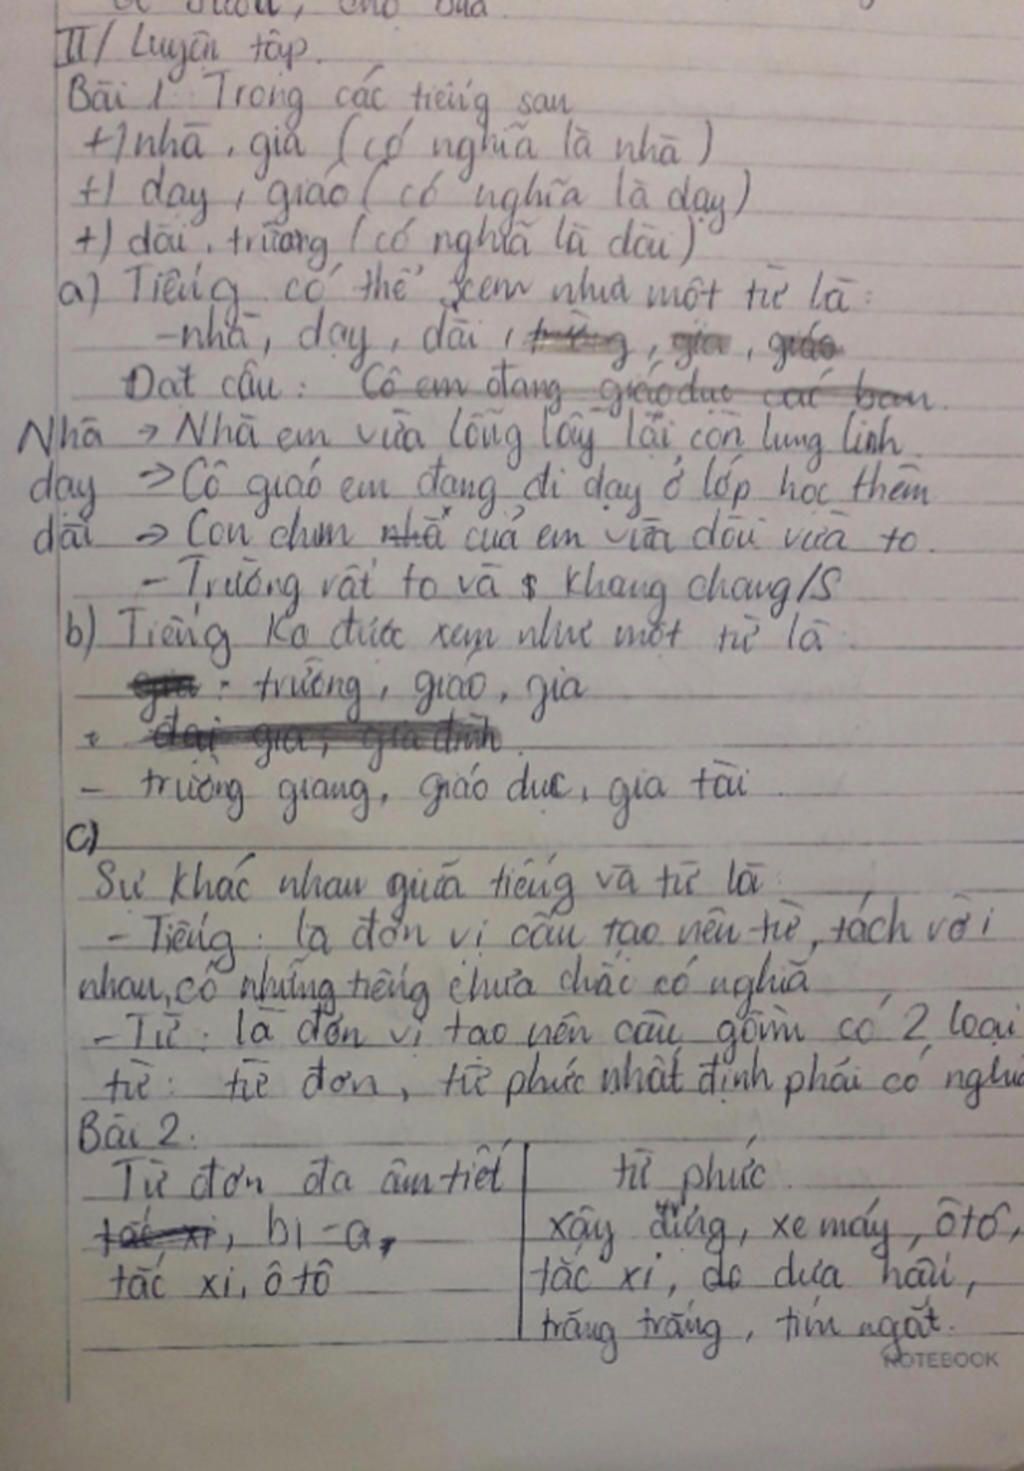 II/ Luyện tập.
Bài 1 Trong các tiếng sau
+) nhà, gia (có nghĩa là nhà)
+) dạy, giáo (có nghĩa là dạy)
+) dài, trường (có nghĩa là dài)
a) Tiếng có thể xem như một từ là:
-nhà, dạy, dài, trường, gia, giáo
Đặt câu: Cô em đang giáo dục các bạn.
Nhà → Nhà em vừa lồng lẫy lại còn lung linh.
dạy → Cô giáo em đang đi dạy ở lớp học thêm
dài → Con chim nhà của em vừa dài vừa to.
- Trường rất to và khang chang/S
b) Tiếng ko được xem như một từ là:
gia : trường, giáo, gia
đại gia, gia đình.
- trường giang, giáo dục, gia tài.
c)
Sự khác nhau giữa tiếng và từ là:
- Tiếng: là đơn vị cấu tạo nên từ, tách với
nhau, có những tiếng chưa chắc có nghĩa
- Từ: là đơn vị tạo nên câu gồm có 2 loại
từ: từ đơn, từ phức nhất định phải có nghĩa
Bài 2:
Từ đơn đa âm tiết
tắc xi, bi-a,
tắc xi, ô tô
từ phức.
xây dựng, xe máy, ôtô,
tắc xi, dưa hấu,
trăng trắng, tím ngắt.
NOTEBOOK